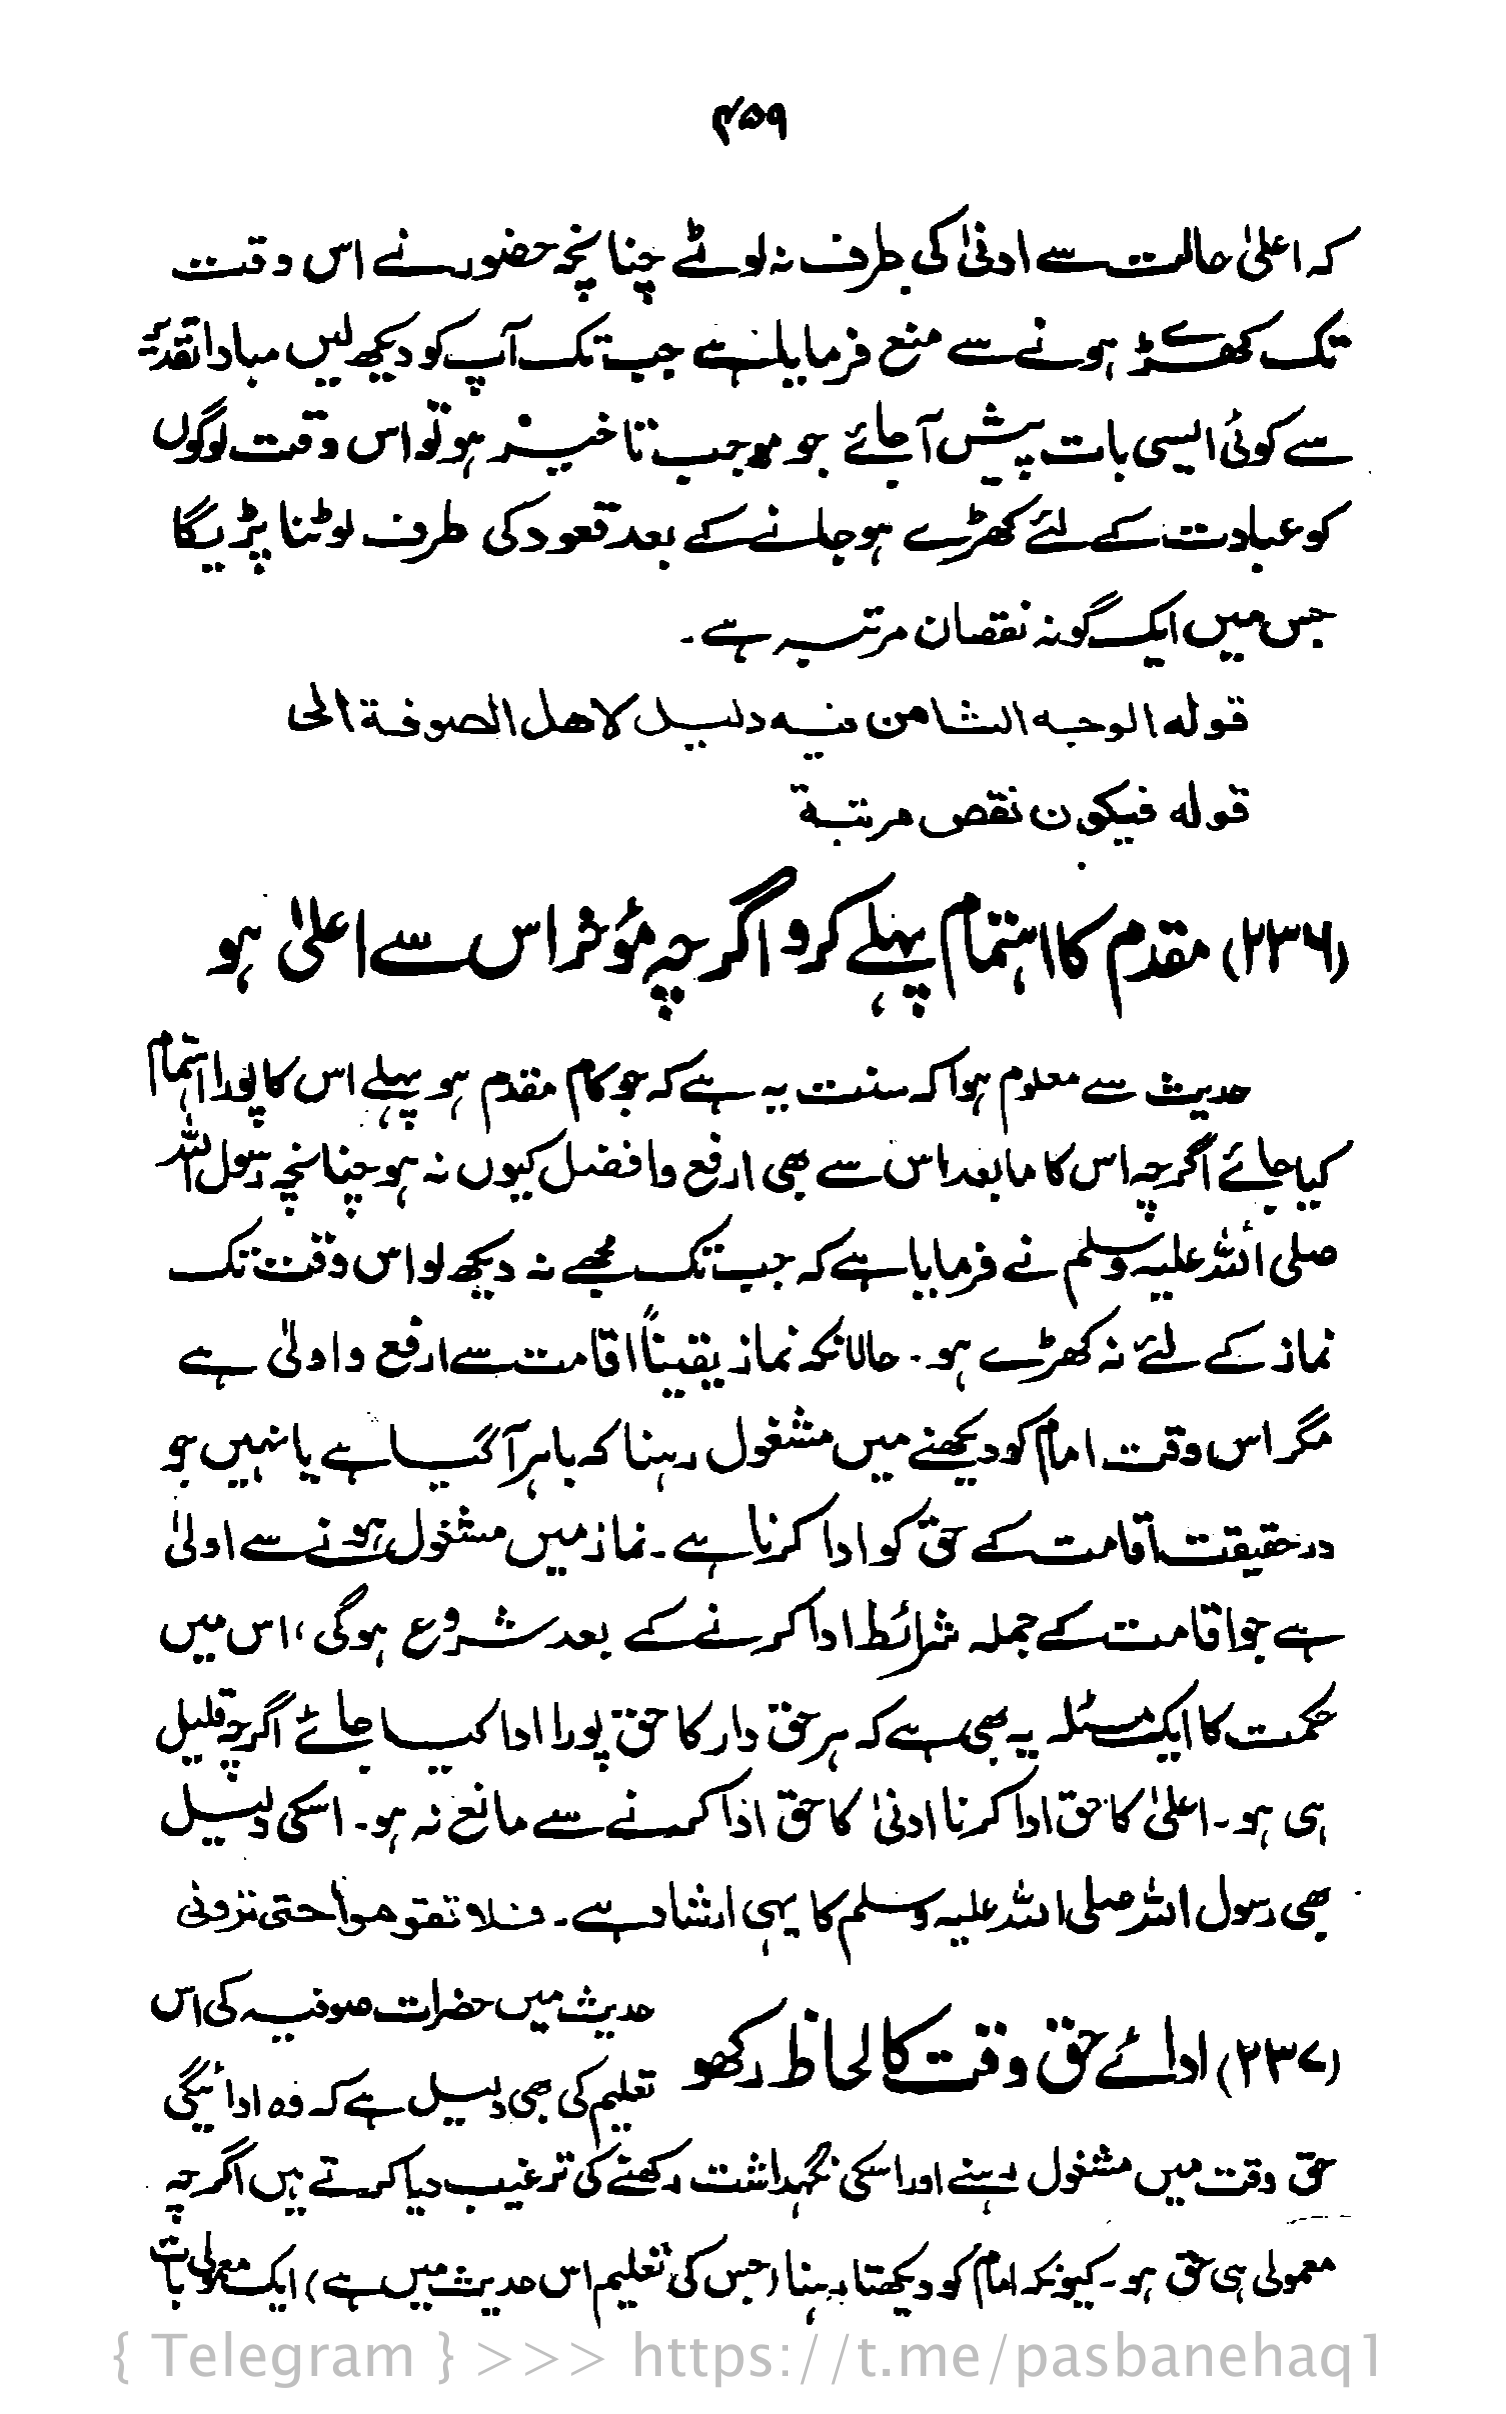 ۴۵۹
کہ اعلیٰ حالت سے ادنیٰ کی طرف نہ لوٹے چنانچہ حضور نے اس وقت
تک کھڑے ہونے سے منع فرمایا ہے جب تک آپ کو دیکھ لیں مبادا تقدیر
سے کوئی ایسی بات پیش آجائے جو موجب تاخیر ہو تو اس وقت لوگوں
کو عبادت کے لئے کھڑے ہو جانے کے بعد قعود کی طرف لوٹنا پڑیگا
جس میں ایک گونہ نقصان مرتبہ ہے۔
قوله الوجه الثامن فيه دليل لاهل الصوفة الى
قوله فيكون نقص مرتبة
(۲۳۶) مقدم کا اہتمام پہلے کرو اگرچہ مؤخر اس سے اعلیٰ ہو
حدیث سے معلوم ہوا کہ سنت یہ ہے کہ جو کام مقدم ہو پہلے اس کا پورا اہتمام
کیا جائے اگرچہ اس کا مابعد اس سے بھی ارفع وافضل کیوں نہ ہو چنانچہ رسول اللہ
صلی اللہ علیہ وسلم نے فرمایا ہے کہ جب تک مجھے نہ دیکھ لو اس وقت تک
نماز کے لئے نہ کھڑے ہو۔ حالانکہ نماز یقیناً اقامت سے ارفع واولیٰ ہے
مگر اس وقت امام کو دیکھنے میں مشغول رہنا کہ باہر آگیا ہے یا نہیں جو
درحقیقت اقامت کے حق کو ادا کرنا ہے۔ نماز میں مشغول ہونے سے اولیٰ
ہے جو اقامت کے جملہ شرائط ادا کرنے کے بعد شروع ہوگی، اس میں
حکمت کا ایک مسئلہ یہ بھی ہے کہ ہر حق دار کا حق پورا ادا کیا جائے اگرچہ قلیل
ہی ہو۔ اعلیٰ کا حق ادا کرنا ادنیٰ کا حق ادا کرنے سے مانع نہ ہو۔ اسکی دلیل
بھی رسول اللہ صلی اللہ علیہ وسلم کا یہی ارشاد ہے۔ فلا تقوموا حتى تروني
(۲۳۷) ادائے حق وقت کا لحاظ رکھو
حدیث میں حضرات صوفیہ کی اس
تعلیم کی بھی دلیل ہے کہ وہ ادائیگی
حق وقت میں مشغول رہنے اور اسکی نگہداشت رکھنے کی ترغیب دیا کرتے ہیں اگرچہ
معمولی ہی حق ہو۔ کیونکہ امام کو دیکھتا رہنا (جس کی تعلیم اس حدیث میں ہے) ایک معمولی بات
{ Telegram } >>> https://t.me/pasbanehaq1